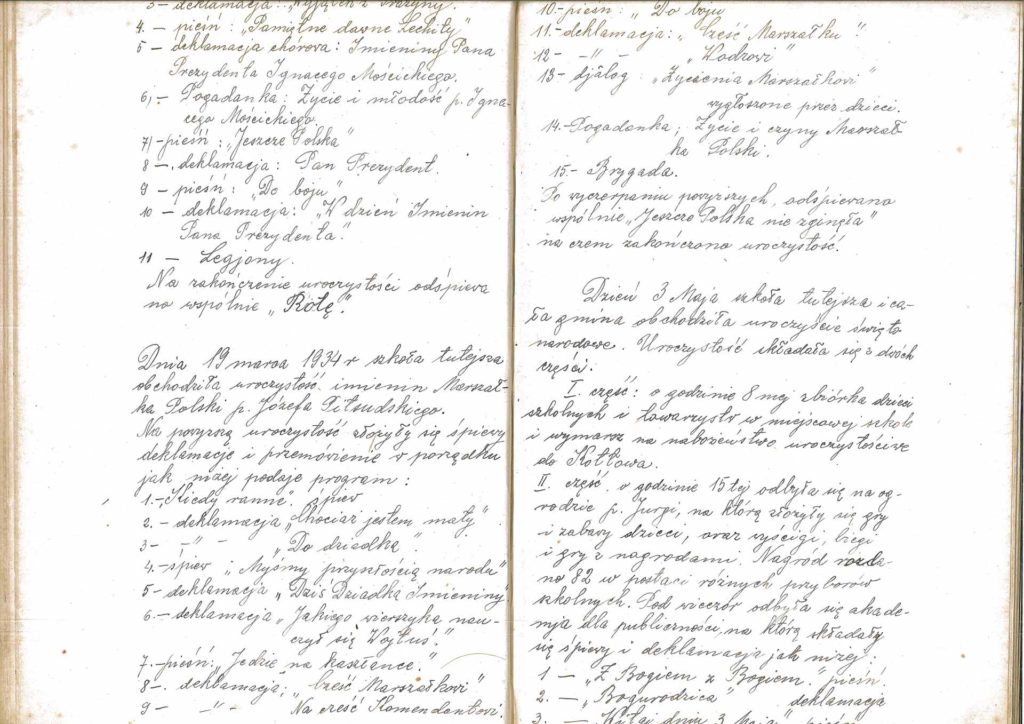 3 - deklamacja: „Wyjątek z Grażyny."
4. - pieśń: „Pamiętne dawne Lechity"
5 - deklamacja chórowa: Imieniny Pana
Prezydenta Ignacego Mościckiego.
6, - Pogadanka: Życie i młodość p. Igna-
cego Mościckiego.
7) - pieśń: „Jeszcze Polska"
8 - deklamacja: Pan Prezydent.
9 - pieśń: „Do boju"
10 - deklamacja: „W dzień Imienin
Pana Prezydenta".
11 - Legjony.
Na zakończenie uroczystości odśpiewa
no wspólnie „Rotę".
Dnia 19 marca 1934 r szkoła tutejsza
obchodziła uroczystość imienin Marszał-
ka Polski p. Józefa Piłsudskiego.
Na powyższą uroczystość złożyły się śpiewy
deklamacje i przemówienie w porządku
jak niżej podaje program:
1. - „Kiedy ranne" śpiew
2. - deklamacja „Chociaż jestem mały"
3 - -"- „Do dziadka"
4. - śpiew „Myśmy przyszłością narodu"
5 - deklamacja „Dziś Dziadka Imieniny"
6. - deklamacja „Jakiego wierszyka nau-
czył się Wojtuś".
7. - pieśń: „Jedzie na kasztance."
8 -. deklamacja; „Cześć Marszałkowi"
9 - -"- Na cześć Komendantowi.
10. - pieśń: „Do boju
11. - deklamacja: „Cześć Marszałku"
12 - -"- „Wodzowi"
13 - djalog: „Życzenia Marszałkowi"
wygłoszone przez dzieci.
14. - Pogadanka; Życie i czyny Marszał-
ka Polski.
15. - Brygada.
Po wyczerpaniu powyższych, odśpiewano
wspólnie „Jeszcze Polska nie zginęła"
na czem zakończono uroczystość.
Dzień 3 Maja szkoła tutejsza i ca-
ła gmina obchodziła uroczyście święto
narodowe. Uroczystość składała się z dwóch
części.
I. część: o godzinie 8 mej zbiórka dzieci
szkolnych i towarzystw w miejscowej szkole
i wymarsz na nabożeństwo uroczystościowe
do Kotłowa.
II. część o godzinie 15 tej odbyła się na og-
rodzie p. Jurgi, na którą złożyły się gry
i zabawy dzieci, oraz wyścigi, biegi
i gry z nagrodami. Nagród rozda-
no 82 w postaci różnych przyborów
szkolnych. Pod wieczór odbyła się akade-
mja dla publiczności, na którą składały
się śpiewy i deklamacja jak niżej:
1 - „Z Bogiem z Bogiem." pieśń.
2. - „Bogurodzica" deklamacja
3. - „Witaj dniu 3 Maja" pieśń